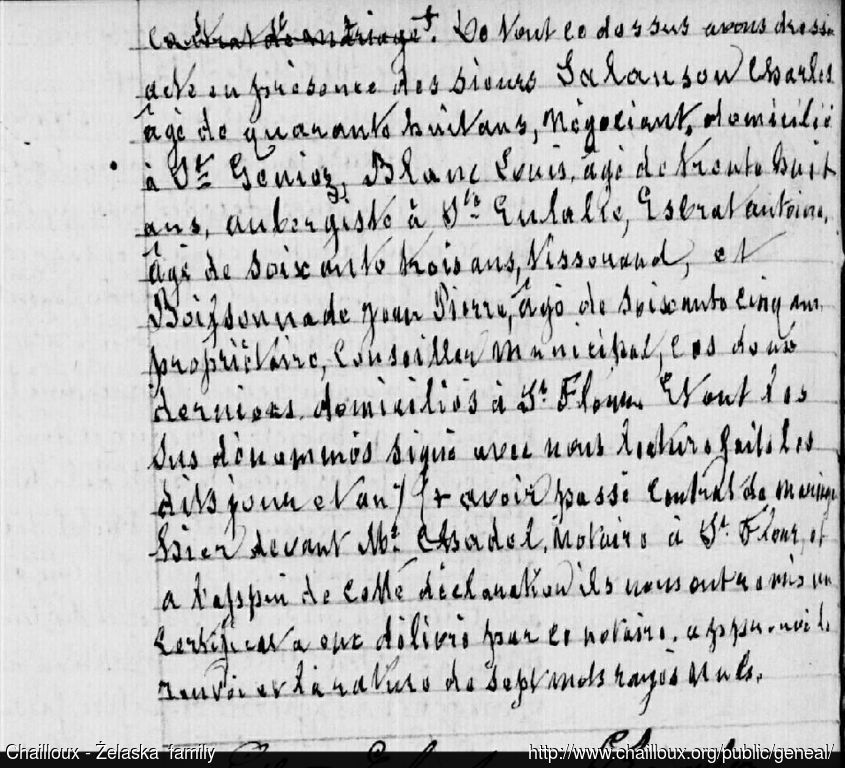 contrat de mariage +. De tout ce dessus avons dressé
acte en présence des sieurs Salanson Charles
âgé de quarante huit ans, négociant, domicilié
à St Geniez, Blanc Louis, âgé de trente huit
ans, aubergiste à Ste Eulalie, Esbrat antoine,
âgé de soixante trois ans, tisserand, et
Boissonnade Jean Pierre, âgé de soixante cinq ans
propriétaire, Conseiller Municipal, les deux
derniers domiciliés à St Flour. Et ont les
sus dénommés signé avec nous lecture faite les
dits jour et an) (+ avoir passé Contrat de mariage
hier devant Me Chadel, Notaire à St Flour, et
a l'appui de cette déclaration ils nous ont remis un
Certificat a eux délivré par ce notaire. approuvé le
renvoi et la rature de sept mots rayés nuls.
Chailloux - Želaska family http://www.chailloux.org/public/geneal/